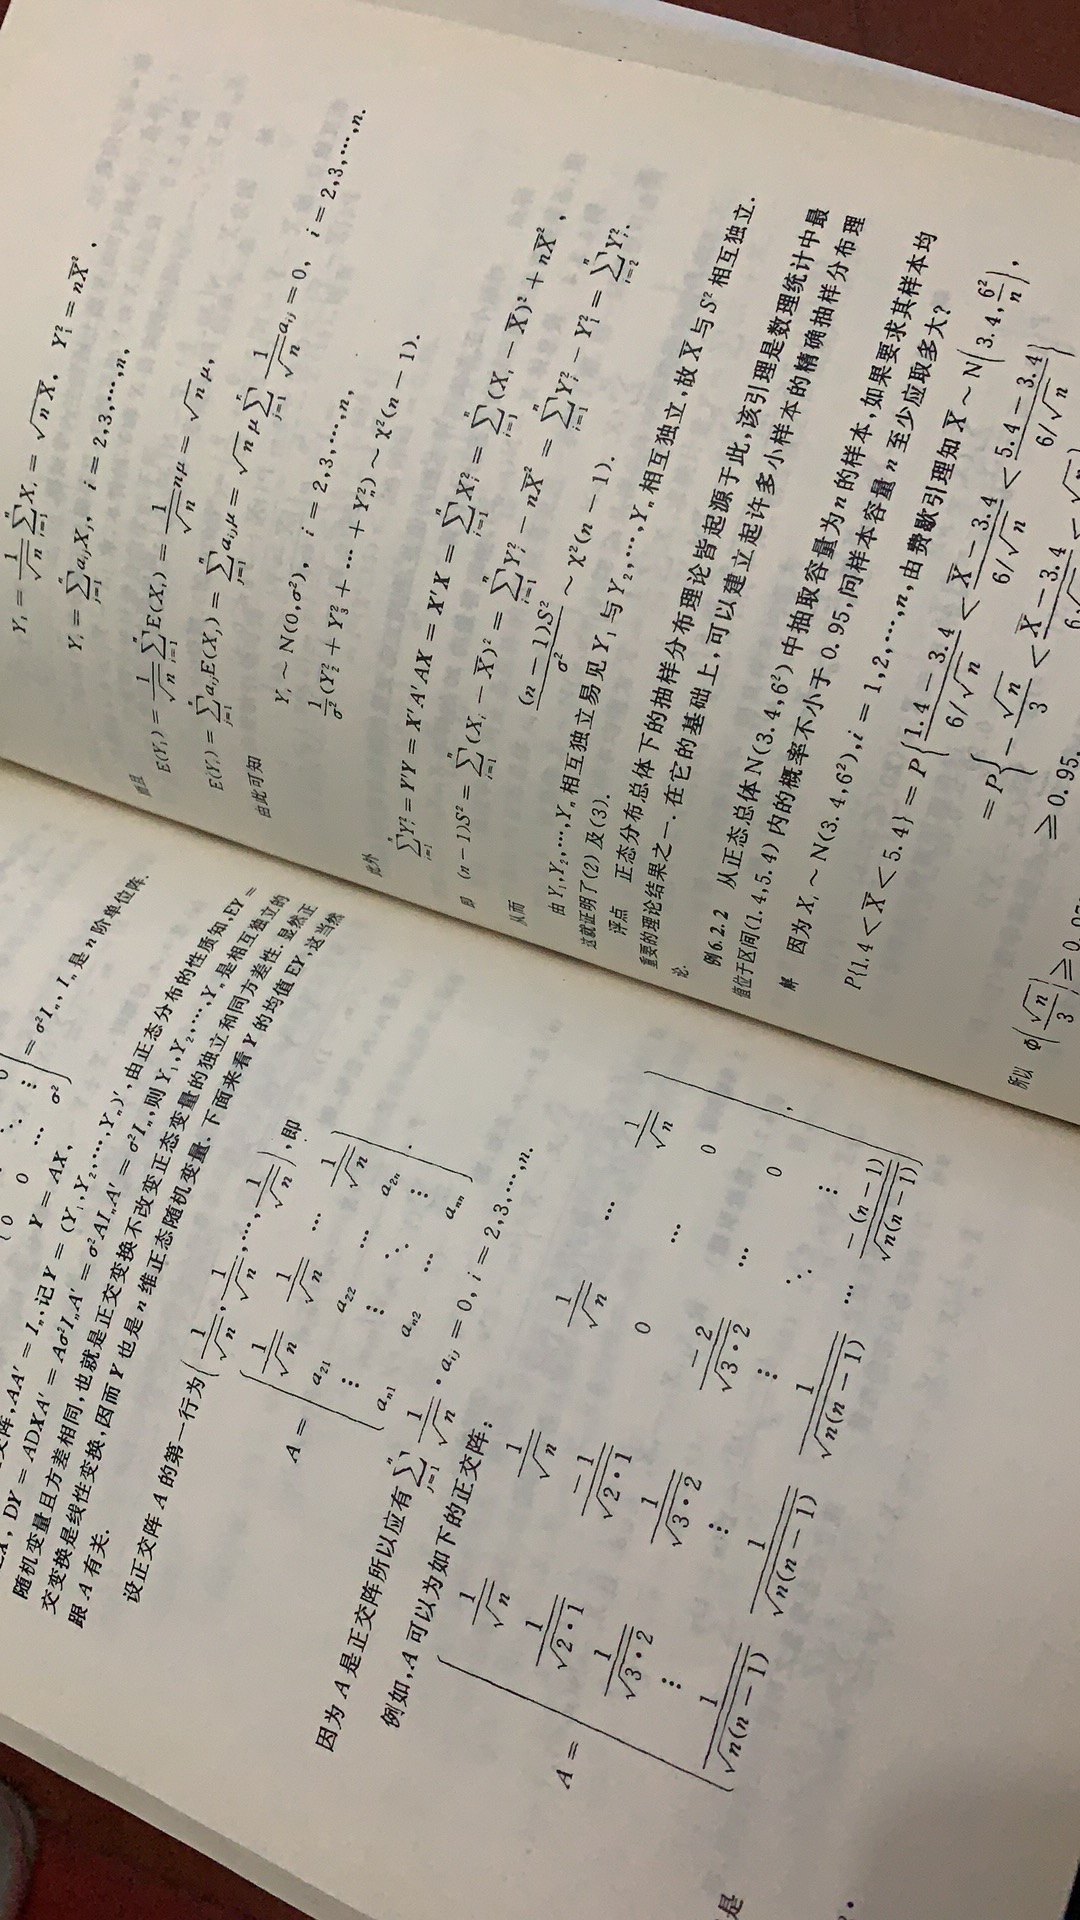 = σ²Iₙ, Iₙ 是 n 阶单位阵.
交阵, AA′ = Iₙ, 记 Y = (Y₁, Y₂, …, Yₙ)′, 由正态分布的性质知, EY =
Y = AX,
DY = ADXA′ = Aσ²IₙA′ = σ²AIₙA′ = σ²Iₙ, 则 Y₁, Y₂, …, Yₙ 是相互独立的
随机变量且方差相同, 也就是正交变换不改变正态变量的独立和同方差性. 显然正
交变换是线性变换, 因而 Y 也是 n 维正态随机变量. 下面来看 Y 的均值 EY, 这当然
跟 A 有关.
设正交阵 A 的第一行为 (1/√n, 1/√n, …, 1/√n), 即
A = ( 1/√n 1/√n … 1/√n
a₂₁ a₂₂ … a₂ₙ
⋮ ⋮ ⋱ ⋮
aₙ₁ aₙ₂ … aₙₙ ).
因为 A 是正交阵所以应有 ∑ⱼ₌₁ⁿ 1/√n · aᵢⱼ = 0, i = 2,3,…,n.
例如, A 可以为如下的正交阵:
A = ( 1/√n 1/√n 1/√n … 1/√n
1/√(2·1) −1/√(2·1) 0 … 0
1/√(3·2) 1/√(3·2) −2/√(3·2) … 0
⋮ ⋮ ⋮ ⋱ ⋮
1/√(n(n−1)) 1/√(n(n−1)) 1/√(n(n−1)) … −(n−1)/√(n(n−1)) ),
Y₁ = 1/√n ∑ᵢ₌₁ⁿ Xᵢ = √n X̄, Y₁² = nX̄²,
Yᵢ = ∑ⱼ₌₁ⁿ aᵢⱼXⱼ, i = 2,3,…,n,
并且
E(Y₁) = 1/√n ∑ᵢ₌₁ⁿ E(Xᵢ) = 1/√n nμ = √n μ,
E(Yᵢ) = ∑ⱼ₌₁ⁿ aᵢⱼE(Xⱼ) = ∑ⱼ₌₁ⁿ aᵢⱼμ = √n μ ∑ⱼ₌₁ⁿ 1/√n aᵢⱼ = 0, i = 2,3,…,n.
由此可知
Yᵢ ~ N(0, σ²), i = 2,3,…,n,
1/σ² (Y₂² + Y₃² + … + Yₙ²) ~ χ²(n − 1).
此外
∑ᵢ₌₁ⁿ Yᵢ² = Y′Y = X′A′AX = X′X = ∑ᵢ₌₁ⁿ Xᵢ² = ∑ᵢ₌₁ⁿ (Xᵢ − X̄)² + nX̄²,
即 (n − 1)S² = ∑ᵢ₌₁ⁿ (Xᵢ − X̄)² = ∑ᵢ₌₁ⁿ Yᵢ² − nX̄² = ∑ᵢ₌₁ⁿ Yᵢ² − Y₁² = ∑ᵢ₌₂ⁿ Yᵢ².
从而
(n − 1)S²/σ² ~ χ²(n − 1).
由 Y₁, Y₂, …, Yₙ 相互独立易见 Y₁ 与 Y₂, …, Yₙ 相互独立, 故 X̄ 与 S² 相互独立.
这就证明了(2)及(3).
评点 正态分布总体下的抽样分布理论皆起源于此, 该引理是数理统计中最
重要的理论结果之一. 在它的基础上, 可以建立起许多小样本的精确抽样分布理
论.
例6.2.2 从正态总体 N(3.4, 6²) 中抽取容量为 n 的样本, 如果要求其样本均
值位于区间(1.4, 5.4) 内的概率不小于 0.95, 问样本容量 n 至少应取多大?
解 因为 Xᵢ ~ N(3.4, 6²), i = 1,2,…,n, 由费歇引理知 X̄ ~ N(3.4, 6²/n),
P{1.4 < X̄ < 5.4} = P{(1.4 − 3.4)/(6/√n) < (X̄ − 3.4)/(6/√n) < (5.4 − 3.4)/(6/√n)}
= P{−√n/3 < (X̄ − 3.4)/
≥ 0.95,
所以 Φ(√n/3) ≥ 0.97
是